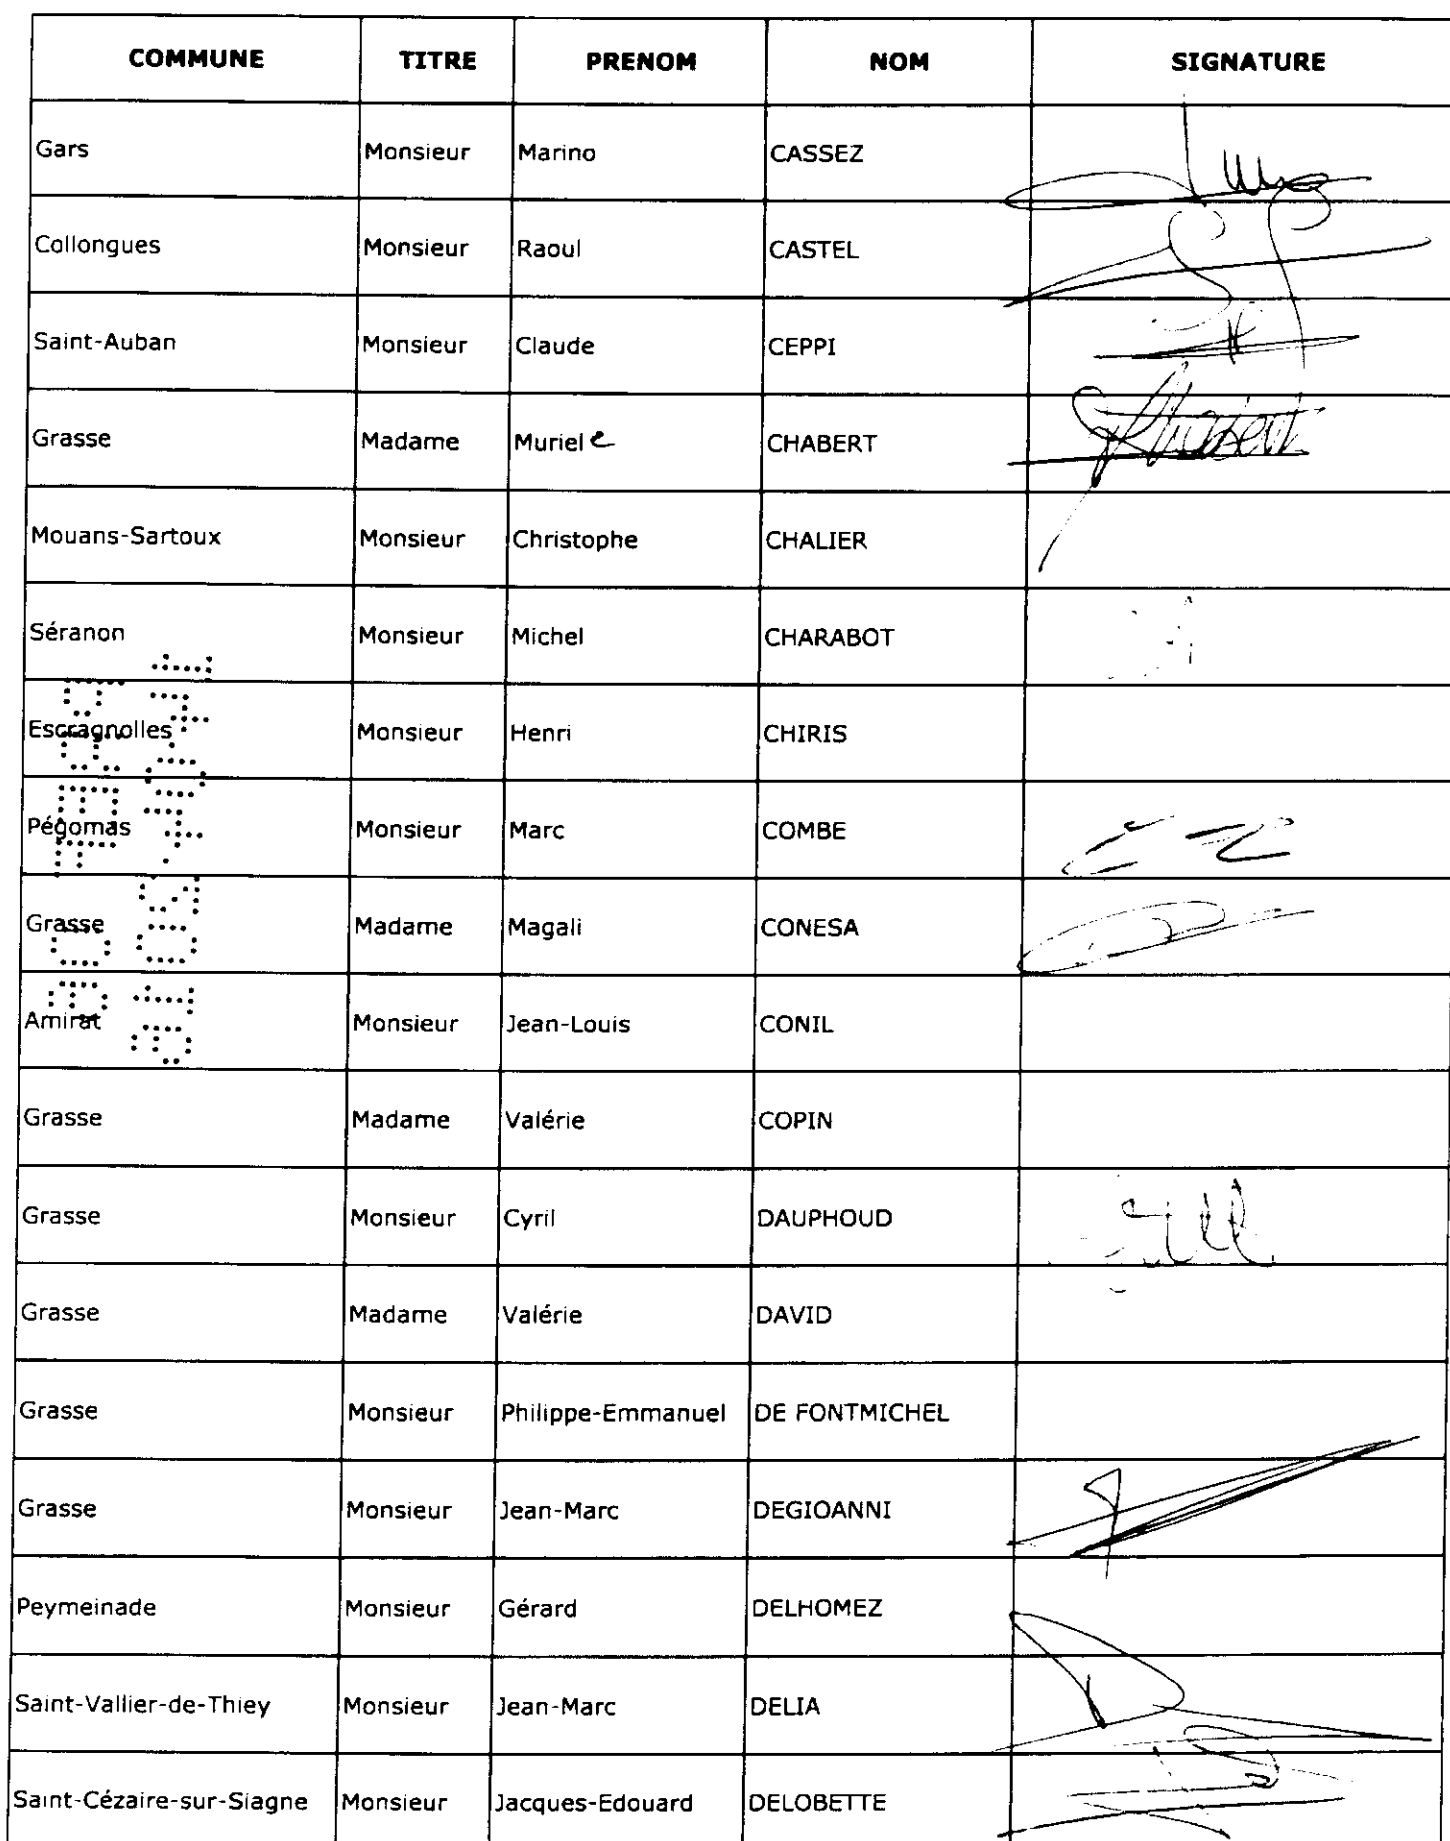 COMMUNE TITRE PRENOM NOM SIGNATURE
Gars Monsieur Marino CASSEZ
Collongues Monsieur Raoul CASTEL
Saint-Auban Monsieur Claude CEPPI
Grasse Madame Muriele CHABERT
Mouans-Sartoux Monsieur Christophe CHALIER
Séranon Monsieur Michel CHARABOT
Escragnolles Monsieur Henri CHIRIS
Pégomas Monsieur Marc COMBE
Grasse Madame Magali CONESA
Amirat Monsieur Jean-Louis CONIL
Grasse Madame Valérie COPIN
Grasse Monsieur Cyril DAUPHOUD
Grasse Madame Valérie DAVID
Grasse Monsieur Philippe-Emmanuel DE FONTMICHEL
Grasse Monsieur Jean-Marc DEGIOANNI
Peymeinade Monsieur Gérard DELHOMEZ
Saint-Vallier-de-Thiey Monsieur Jean-Marc DELIA
Saint-Cézaire-sur-Siagne Monsieur Jacques-Edouard DELOBETTE